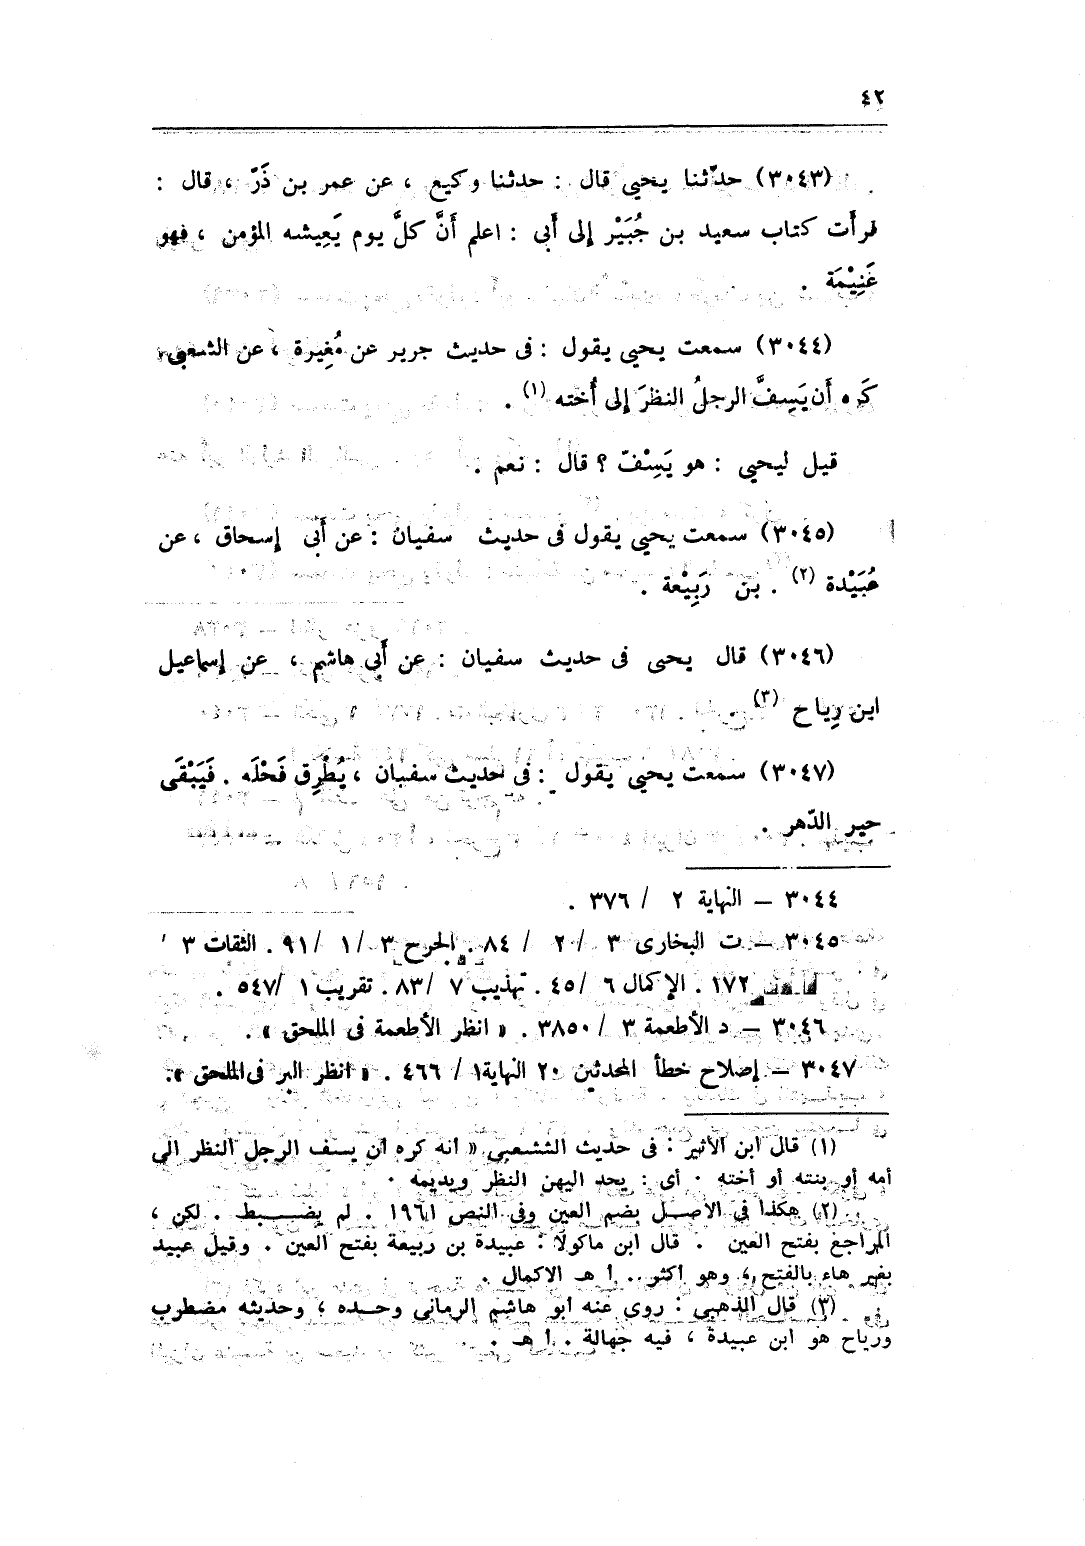 ٤٢
(٣٠٤٣) حدّثنا يحيى قال : حدثنا وكيع ، عن عمر بن ذَرّ ، قال :
قرأت كتاب سعيد بن جُبَيْر إلى أَبى : اعلم أَنَّ كلَّ يوم يَعِيشه المؤمن ، فهو
غَنِيْمَة .
(٣٠٤٤) سمعت يحيى يقول : فى حديث جرير عن مُغِيرة ، عن الشعبى ،
كَره أَن يَسِفَّ الرجلُ النظرَ إلى أُخته (١) .
قيل ليحيى : هو يَسْفّ ؟ قال : نعم .
(٣٠٤٥) سمعت يحيى يقول فى حديث سفيان : عن أَبى إسحاق ، عن
عُبَيْدة (٢) . بن رَبِيْعة .
(٣٠٤٦) قال يحيى فى حديث سفيان : عن أَبى هاشم ، عن إسماعيل
ابن رِياح (٣) .
(٣٠٤٧) سمعت يحيى يقول : فى حديث سفيان ، يُطْرِق فَحْلَه . فَيَبْقَى
حير الدّهر .
٣٠٤٤ – النهاية ٢ / ٣٧٦ .
٣٠٤٥ – ت البخارى ٣ / ٢ / ٨٤ . الجرح ٣ / ١ / ٩١ . الثقات ٣
١٧٢ . الإكمال ٦ / ٤٥ . تهذيب ٧ / ٨٣ . تقريب ١ / ٥٤٧ .
٣٠٤٦ – د الأطعمة ٣ / ٣٨٥٠ . « انظر الأطعمة فى الملحق » .
٣٠٤٧ – إصلاح خطأ المحدثين ٢٠ النهاية ١ / ٤٦٦ . « انظر البر فى الملحق » .
(١) قال ابن الأثير : فى حديث الشعبى « أنه كره أن يسف الرجل النظر الى
أمه أو بنته أو أخته . أى : يحد اليهن النظر ويديمه .
(٢) هكذا فى الأصل بضم العين وفى النص ١٩٦١ . لم يضبط . لكن ،
المراجع بفتح العين . قال ابن ماكولا : عبيدة بن ربيعة بفتح العين . وقيل عبيد
بغير هاء بالفتح ، وهو أكثر . . أ هـ الاكمال .
(٣) قال الذهبى : روى عنه ابو هاشم الرمانى وحده ، وحديثه مضطرب
ورياح هو ابن عبيدة ، فيه جهالة . . أ هـ .